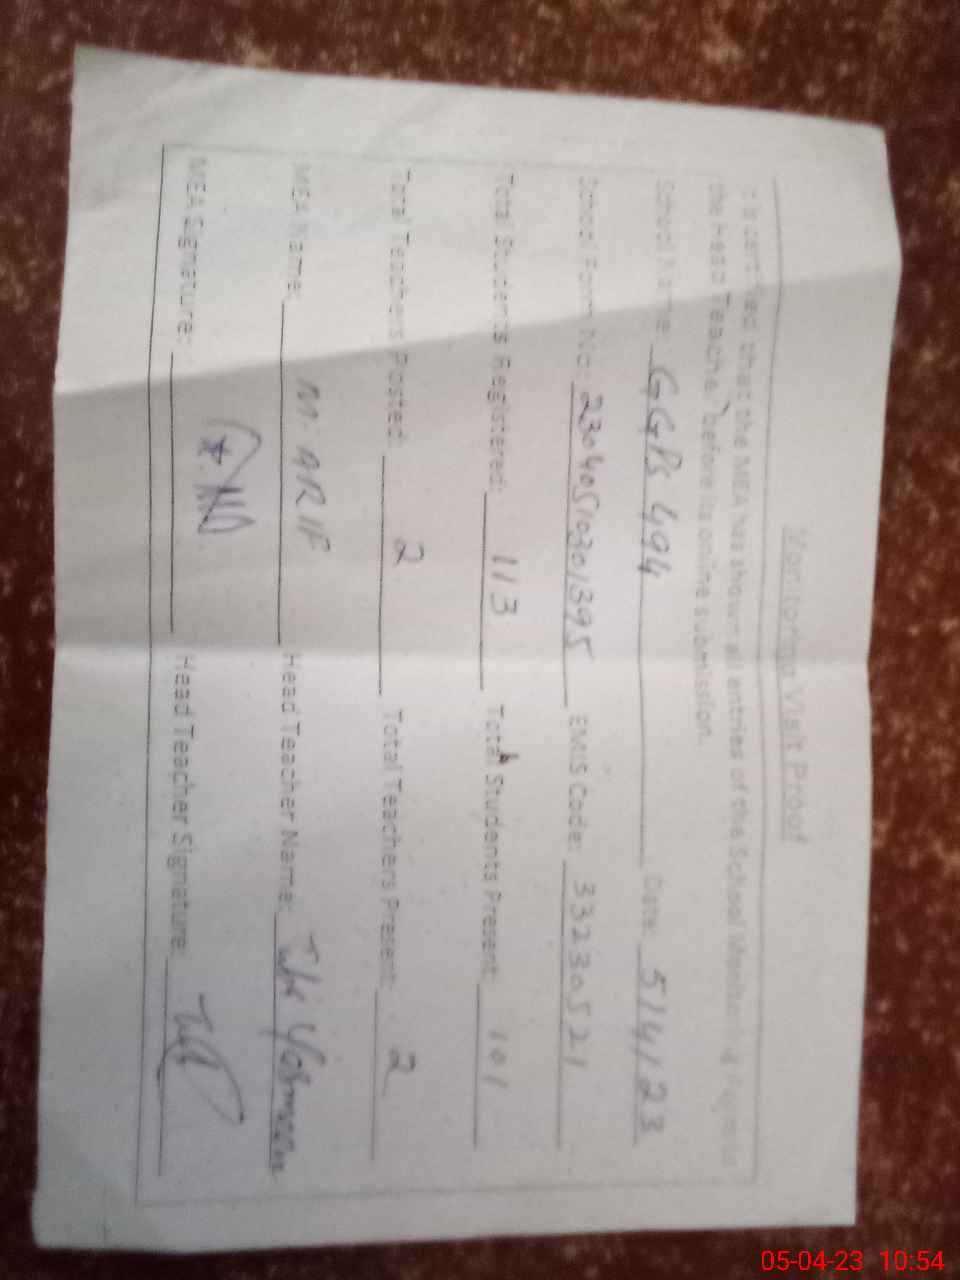 Monitoring Visit Proof
It is certified that the MEA has shown all entries of the School Monitoring Proforma to
the Head Teacher before its online submission.
School Name: GGPS 494 Date: 5/4/23
School Form No: 2304051030301395 EMIS Code: 33230521
Total Students Registered: 113 Total Students Present: 101
Total Teachers Posted: 2 Total Teachers Present: 2
MEA Name: M. ARIF Head Teacher Name:
MEA Signature: Head Teacher Signature:
05-04-23 10:54